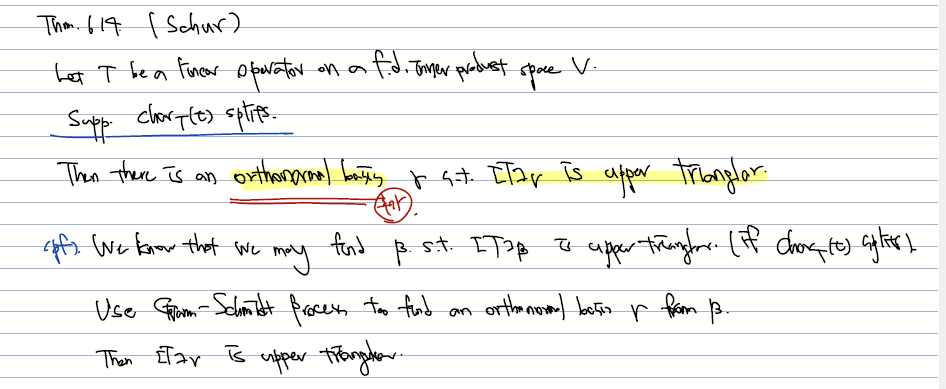 Thm. 6.14. (Schur)
Let T be a linear operator on a f.d. inner product space V.
Supp. char_T(t) splits.
Then there is an orthonormal basis γ s.t. [T]_γ is upper triangular.
(pf). We know that we may find β. s.t. [T]_β is upper triangular. (if char_T(t) splits).
Use Gram-Schmidt process to find an orthonormal basis γ from β.
Then [T]_γ is upper triangular.